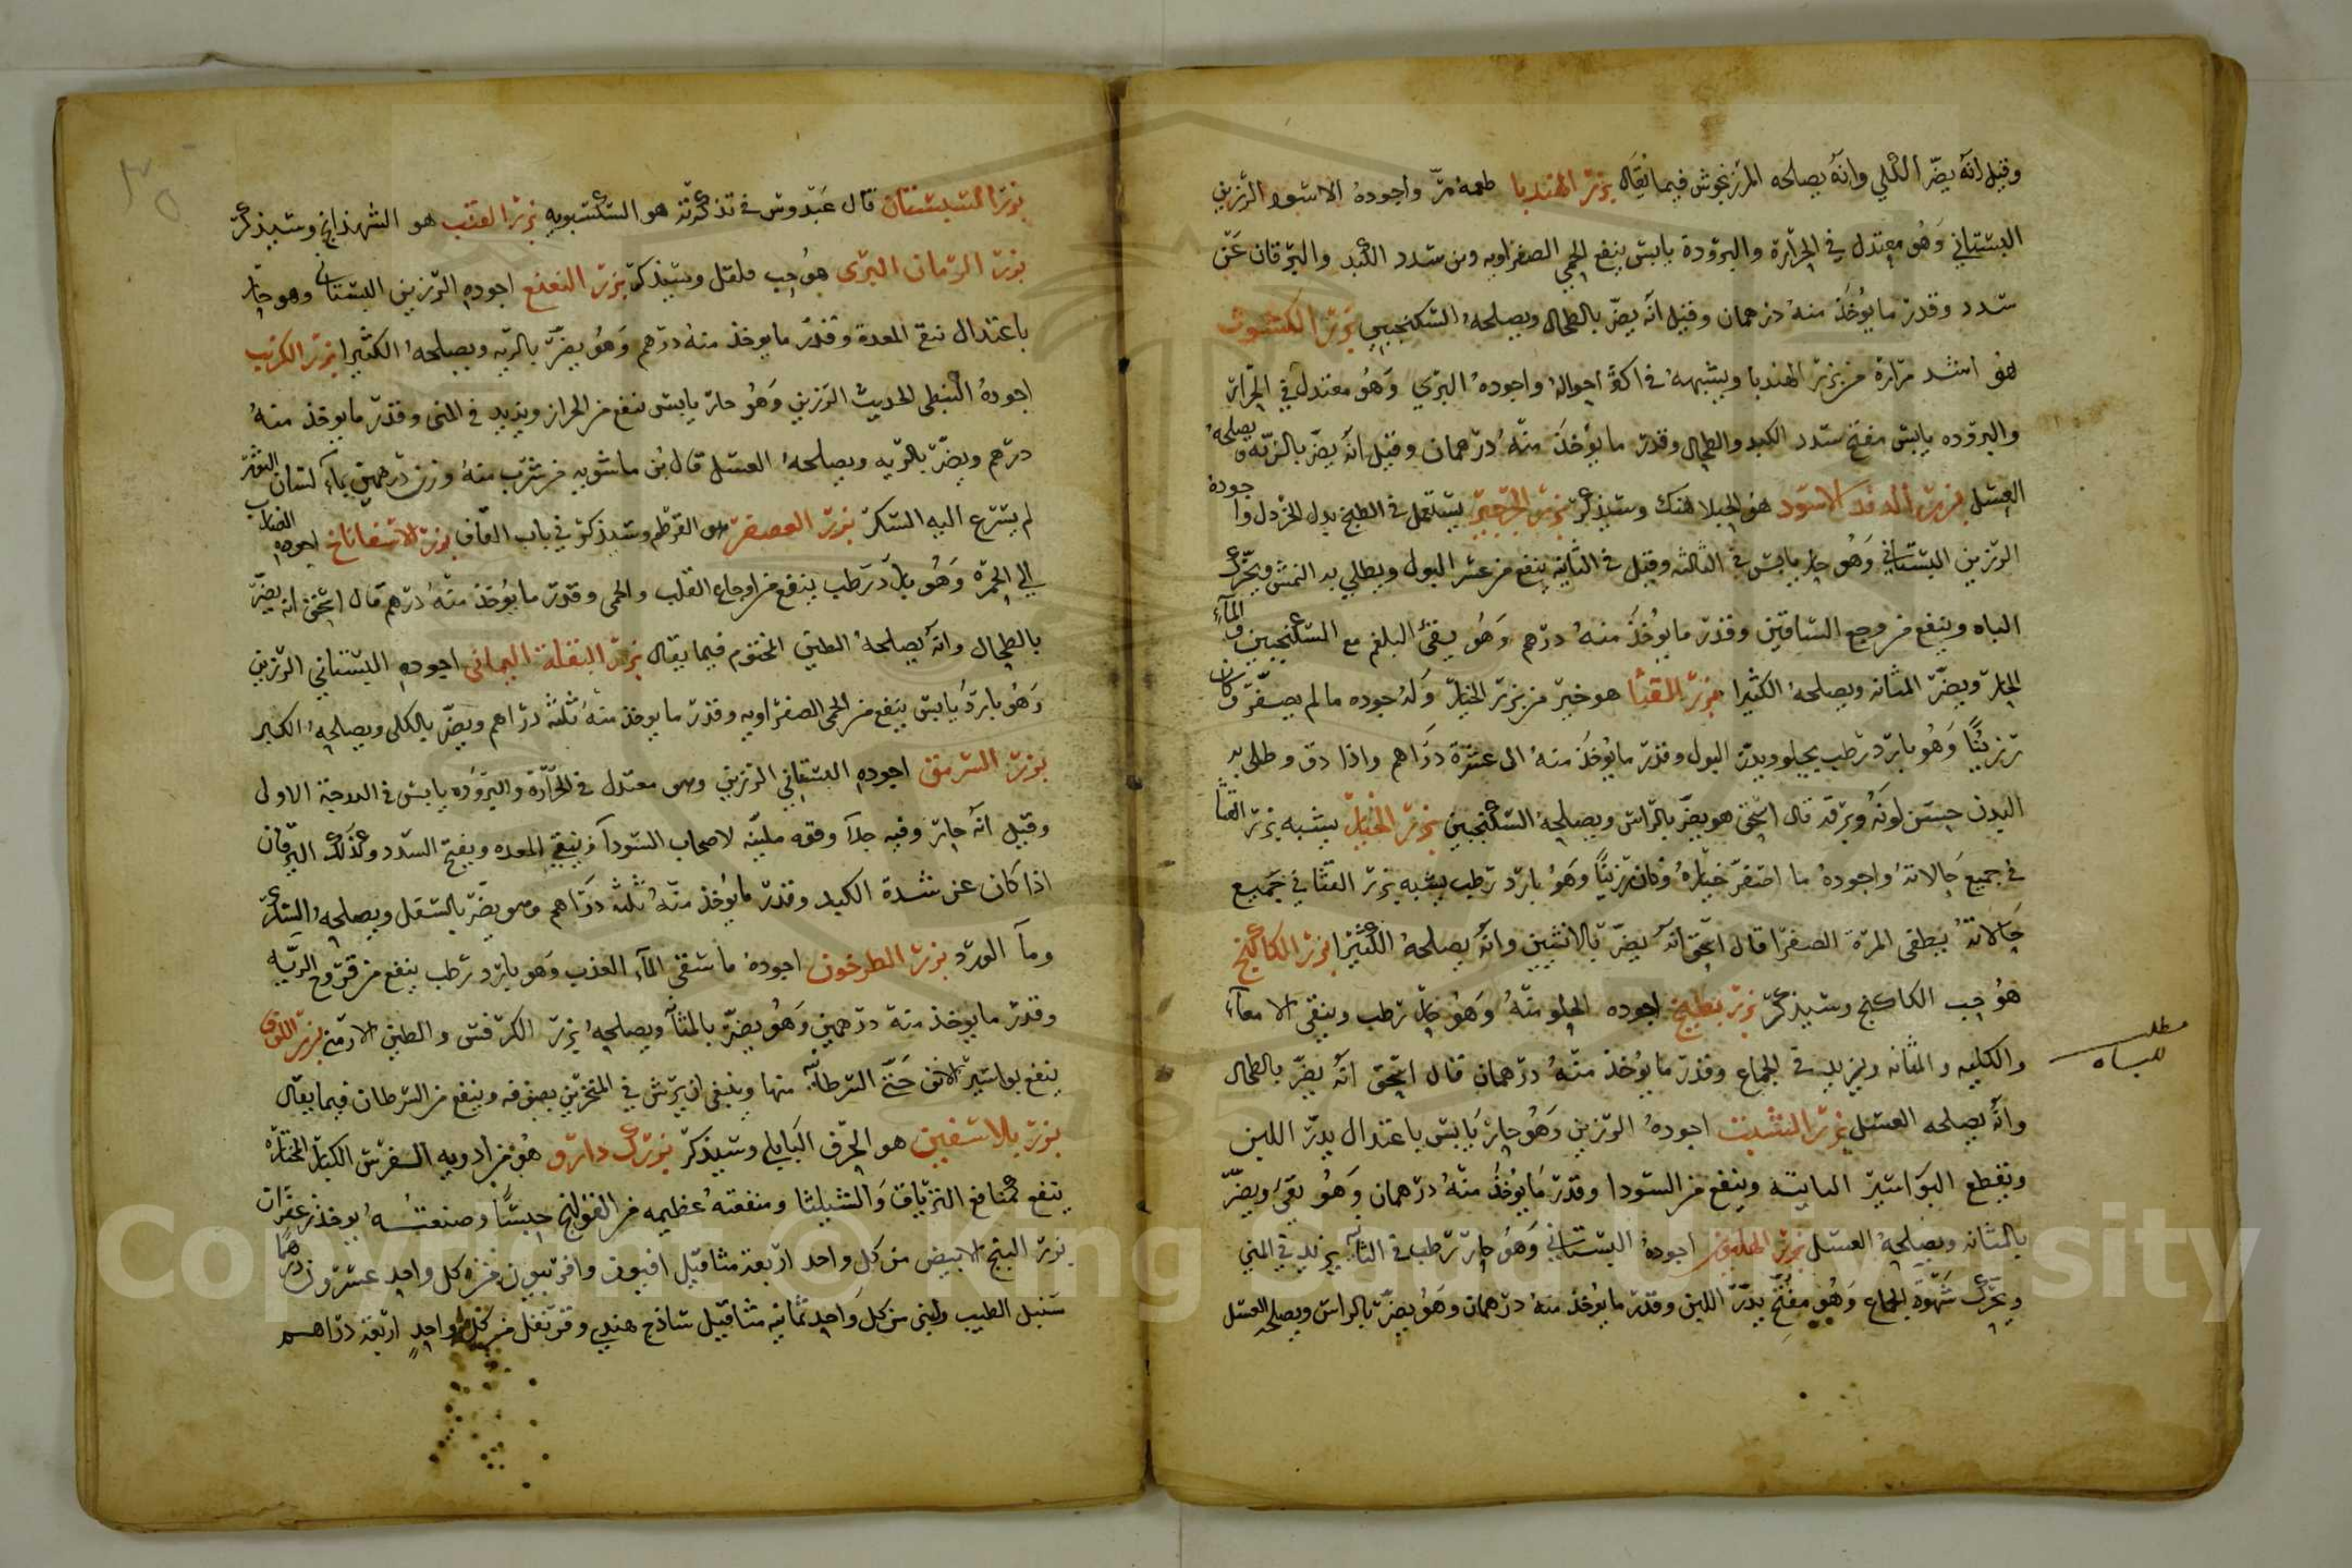 وقيل انه يضر الكلي وانه يصلحه المرزنجوش فيما يقال بزر الهندبا طعمه مر واجوده الاسود الرزين
البستاني وهو معتدل في الحرارة والبرودة يابس ينفع الحمي الصفراويه ومن سدد الكبد واليرقان عن
سدد وقدر ما يوخذ منه درهمان وقيل انه يضر بالطحال ويصلحه السكنجبين بزر الكشوث
هو اشد مرارة من بزر الهندبا ويشبهه في اكثر احواله واجوده البري وهو معتدل في الحرارة
والبروده يابس مفتح سدد الكبد والطحال وقدر ما يوخذ منه درهمان وقيل انه يضر بالريه ويصلحه
العسل بزر الاسود هو الحبلاهنك وسيذكر بزر الجرجير يستعمل في الطبخ بدل الخردل واجوده
الرزين البستاني وهو حار يابس في الثالثه وقيل في الثانيه ينفع من عسر البول ويطلي به النمش ويحرك
الباه وينفع من وجع الساقين وقدر ما يوخذ منه درهم وهو يقئ البلغم مع السكنجبين والماء
الحار ويضر المثانه ويصلحه الكثيرا بزر القثا هو خير من بزر الخيار وله جوده ما لم يصفر وكان
رزينا وهو بارد رطب يجلو ويدر البول وقدر ما يوخذ منه الى عشرة دراهم واذا دق وطلى به
البدن حسن لونه وبرقه قال اسحق هو يضر بالراس ويصلحه السكنجبين بزر الخيار يشبه بزر القثا
في جميع حالاته واجوده ما اصفر خياره وكان رزينا وهو بارد رطب يشبه بزر القثا في جميع
حالاته يطفى المرة الصفرا قال اسحق انه يضر بالانثيين وانه يصلحه الكثيرا بزر الكاكنج
هو حب الكاكنج وسيذكر بزر بطيخ اجوده الحلو منه وهو حار رطب وينقي الامعاء
والكليه والمثانه ويزيد في الجماع وقدر ما يوخذ منه درهمان قال اسحق انه يضر بالطحال
وانه يصلحه العسل بزر الشبت اجوده الرزين وهو حار يابس باعتدال يدر اللبن
ويقطع البواسير النابته وينفع من السودا وقدر ما يوخذ منه درهمان وهو يقئ ويضر
بالمثانه ويصلحه العسل بزر الهليون اجوده البستاني وهو حار رطب في الثانيه يزيد في المني
ويحرك شهوة الجماع وهو مفتح يدر اللبن وقدر ما يوخذ منه درهمان وهو يضر بالراس ويصلحه العسل
مطلب
للباه
بزر السيستان قال عبدوس في تذكرته هو السكسبويه بزر القنب هو الشهدانج وسيذكر
بزر الرمان البرى هو حب فلفل وسيذكر بزر النعنع اجوده الرزين البستاني وهو حار
باعتدال ينقي المعدة وقدر ما يوخذ منه درهم وهو يضر بالريه ويصلحه الكثيرا بزر الكرنب
اجوده النبطي الحديث الرزين وهو حار يابس ينفع من الحزاز ويزيد في المنى وقدر ما يوخذ منه
درهم ويضر بالريه ويصلحه العسل قال بن ماسويه من شرب منه وزن درهمين بماء لسان الثور
لم يسرع اليه السكر بزر العصفر هو القرطم وسيذكر في باب القاف بزر الاسفاناخ اجوده الضارب
الي الحمرة وهو بارد رطب ينفع من اوجاع القلب والحمى وقدر ما يوخذ منه درهم قال اسحق انه يضر
بالطحال وانه يصلحه الطين المختوم فيما يقال بزر البقلة اليمانى اجوده البستاني الرزين
وهو بارد يابس ينفع من الحمى الصفراويه وقدر ما يوخذ منه ثلثه دراهم ويضر بالكلى ويصلحه الكبر
بزر السرمق اجوده البستاني الرزين وهو معتدل في الحرارة والبروده يابس في الدرجة الاولى
وقيل انه حار وفيه جلا وقوه ملينه لاصحاب السودا وينقي المعده ويفتح السدد وكذلك اليرقان
اذا كان عن شدة الكبد وقدر ما يوخذ منه ثلثه دراهم وهو يضر بالسفل ويصلحه السكر
وما الورد بزر الطرخون اجوده ما سقى الماء العذب وهو بارد رطب ينفع من قروح الريه
وقدر ما يوخذ منه درهمين وهو يضر بالمثانه ويصلحه بزر الكرفس والطين الارمني بزر اللوف
ينفع بواسير الانف حتى السرطانيه منها وينبغي ان يرش في المنخرين بصوفه وينفع من السرطان فيما يقال
بزر بالاسفين هو الحرف البابلي وسيذكر بزرك دارو هو من ادويه الفرس الكبار المختاره
ينفع كمنافع الترياق والشيلثا ومنفعته عظيمه من القولنج حبسا وصنعته يوخذ زعفران
بزر البنج الابيض من كل واحد اربعة مثاقيل افيون وافربيون من كل واحد عشرون درهما
سنبل الطيب ولبنى من كل واحد ثمانيه مثاقيل ساذج هندي وقرنفل من كل واحد اربعة دراهم
٢٥
Copyright © King Saud University